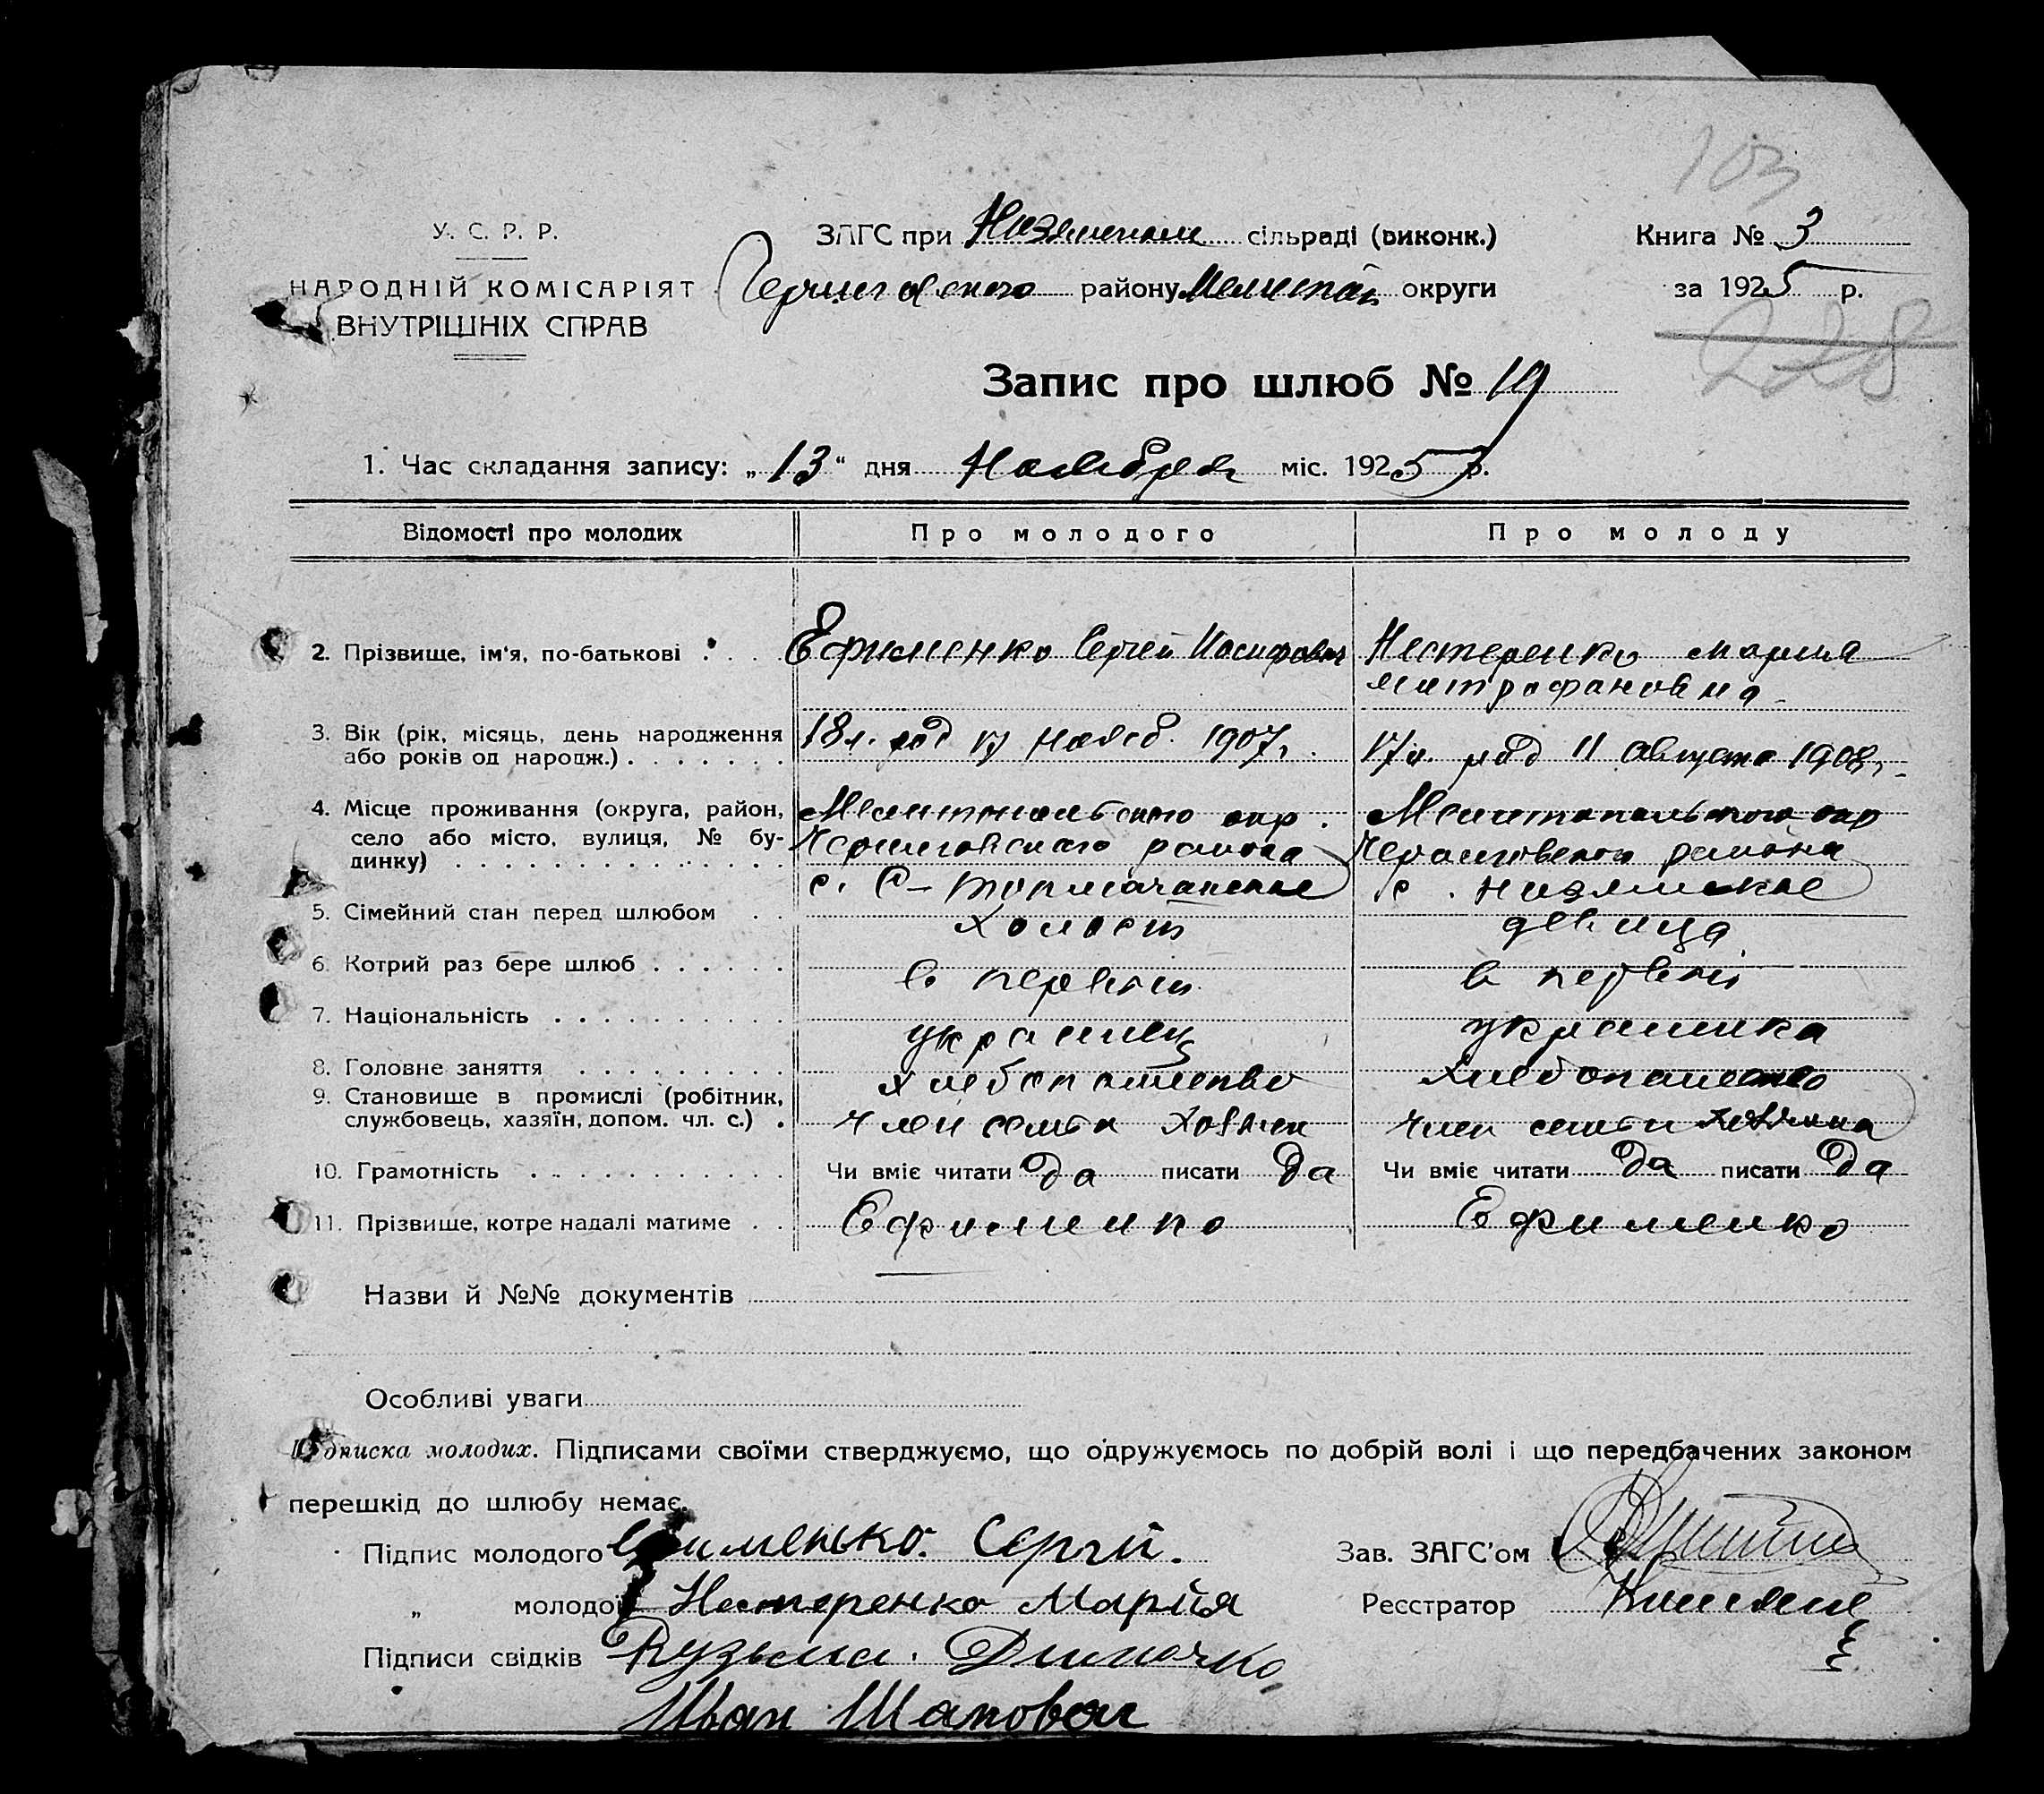 103
У. С. Р. Р.
НАРОДНІЙ КОМІСАРІЯТ
ВНУТРІШНІХ СПРАВ
ЗАГС при сільраді (виконк.)
Черниговского району Мелитоп округи
Книга № 3
за 1925 р.
228
Запис про шлюб № 19
1. Час складання запису: „13“ дня Ноября міс. 1925 р.
Відомості про молодих Про молодого Про молоду
2. Прізвище, ім'я, по-батькові . . . Ефименко Сергей Иосифович Нестеренко мария
митрофановна
3. Вік (рік, місяць, день народження
або років од народж.) . . . . . . . 18 л. род 17 нояб. 1907 г. 17 л. род 11 августа 1908 г.
4. Місце проживання (округа, район, Мелитопольского окр. Мелитопольского окр
село або місто, вулиця, № бу-
динку) . . . . . . . . . . . . . . Черниговского района Черниговского района
с. с.
5. Сімейний стан перед шлюбом . . холост девица
6. Котрий раз бере шлюб . . . . . . в первый в первый
7. Національність . . . . . . . . . . украинец украинка
8. Головне заняття . . . . . . . . . хлебопашество хлебопашество
9. Становище в промислі (робітник,
службовець, хазяїн, допом. чл. с.) . член семьи хозяин член семьи хозяина
10. Грамотність . . . . . . . . . . . Чи вміє читати да писати да Чи вміє читати да писати да
11. Прізвище, котре надалі матиме . . Ефименко Ефименко
Назви й №№ документів
Особливі уваги
Підписка молодих. Підписами своїми стверджуємо, що одружуємось по добрій волі і що передбачених законом
перешкід до шлюбу немає.
Підпис молодого Ефименько. Сергій. Зав. ЗАГС'ом
„ молодої Нестеренко Марія Реєстратор
Підписи свідків Кузьма.
Иван Шаповал